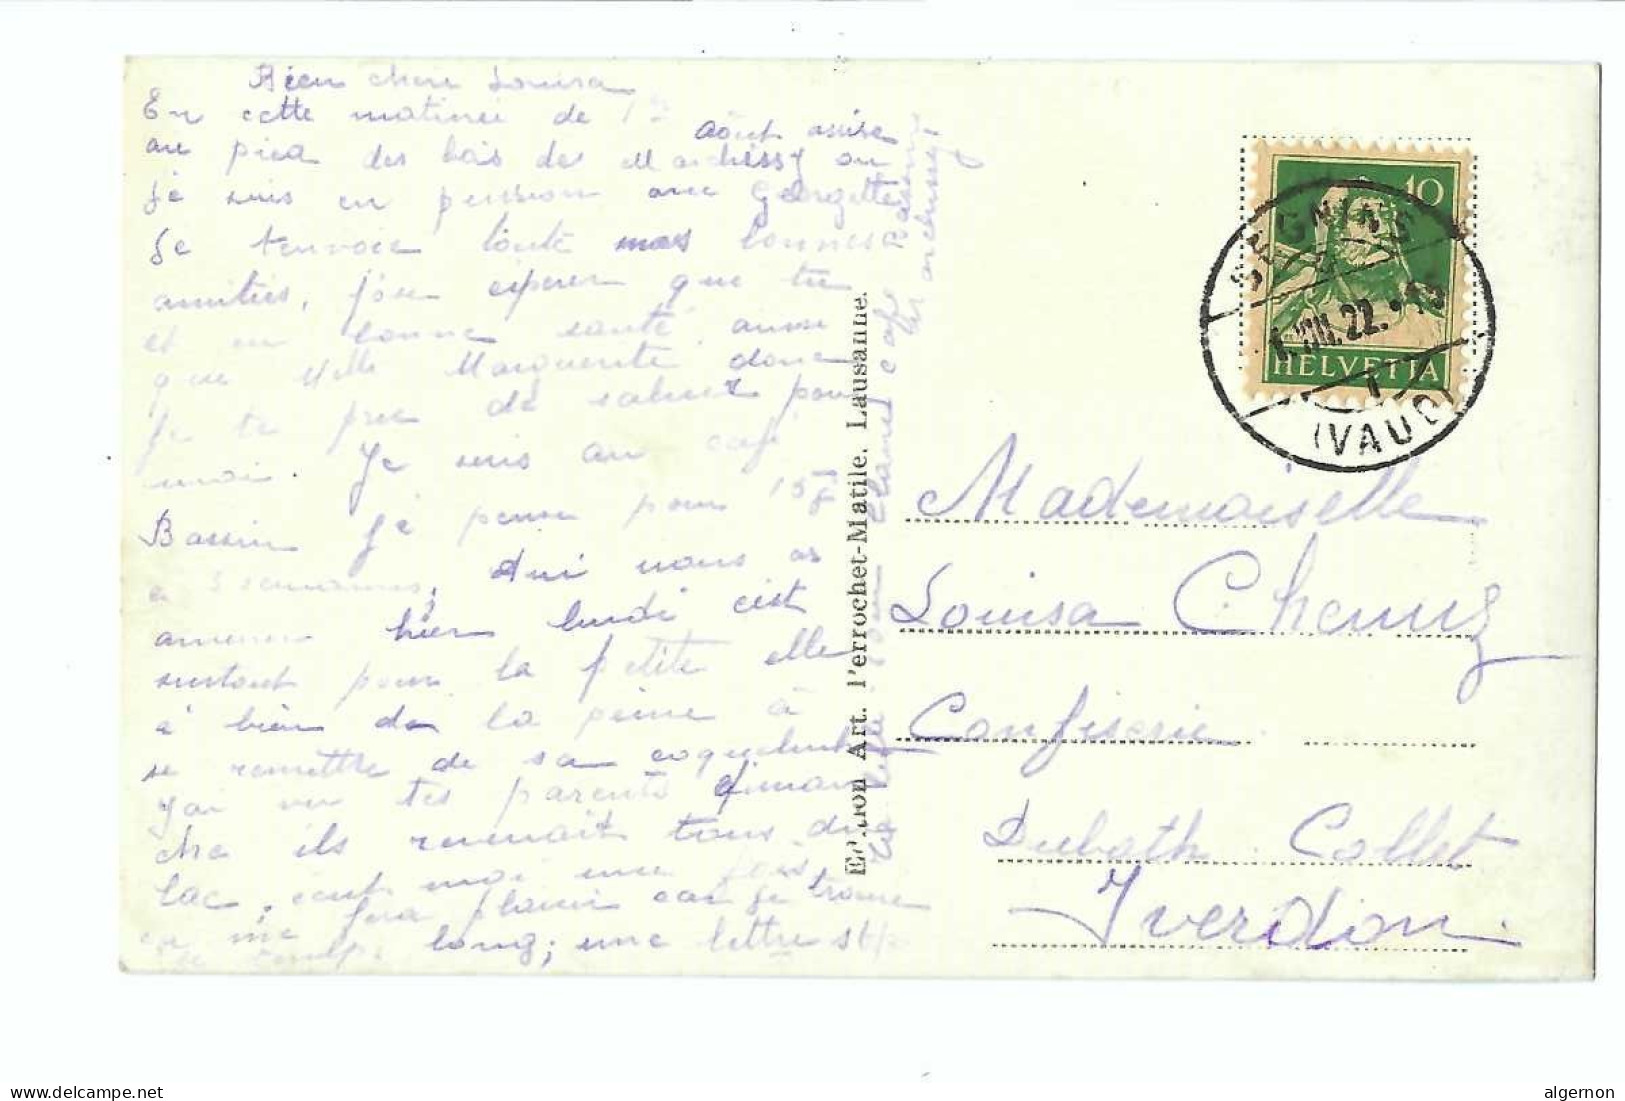 Bien chere Louisa
En cette matinée de 1er août assise
au pied des bois de Marchissy ou
je suis en pension avec Georgette
Je t'envoie toute mes bonnes
amitiés, j'ose esperer que tu
et en bonne santé ainsi
que Melle Marguerite donc
je te prie de saluer pour
moi. Je suis au café
Bassin je pense pour 15
a 3 semaines, qui nous as
amener hier lundi c'est
surtout pour la petite elle
à bien de la peine à
se remettre de sa coqueluche
J'ai vu tes parents diman
che ils revenait tous du
lac, ecrit moi une fois
ca me fera plaisir car je trouve
le temps long; une lettre stp
café Bassin
Marchissy
Edition Art. Perrochet-Matile, Lausanne.
10
HELVETIA
SEGNINS
1.VIII.22.
(VAUD)
Mademoiselle
Louisa Chenuz
Confiserie
Dubath Collet
Yverdon.
delcampe.net
algernon